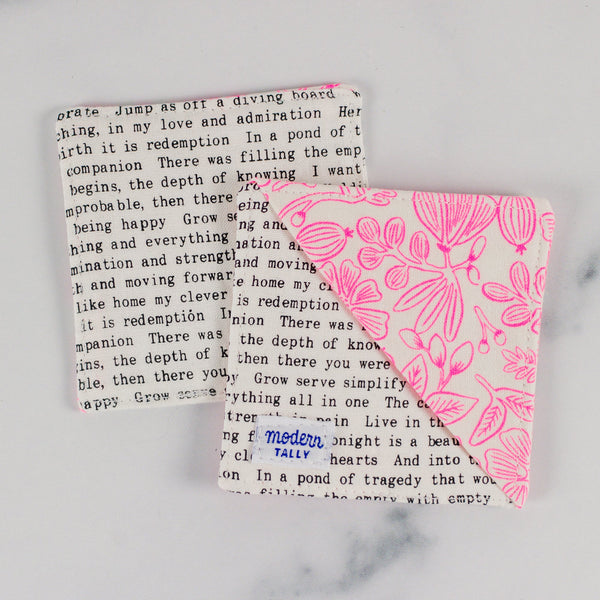 Jump as off a diving board
ching, in my love and admiration Her
birth it is redemption In a pond of t
companion There was filling the emp
begins, the depth of knowing I want
mprobable, then there
being happy Grow se
hing and everything
mination and strength
th and moving forwar
like home my clever
it is redemption In
mpanion There was
ins, the depth of k
ble, then there you
appy Grow serve
eing
ng and
nation an
and moving
e home my cl
is redemption
nion There was
the depth of know
then there you were
y Grow serve simplify
rything all in one The c
strength in pain Live in th
ng f onight is a beau
y cl hearts And into t
on In a pond of tragedy that wou
was filling the empty with empty
modern
TALLY